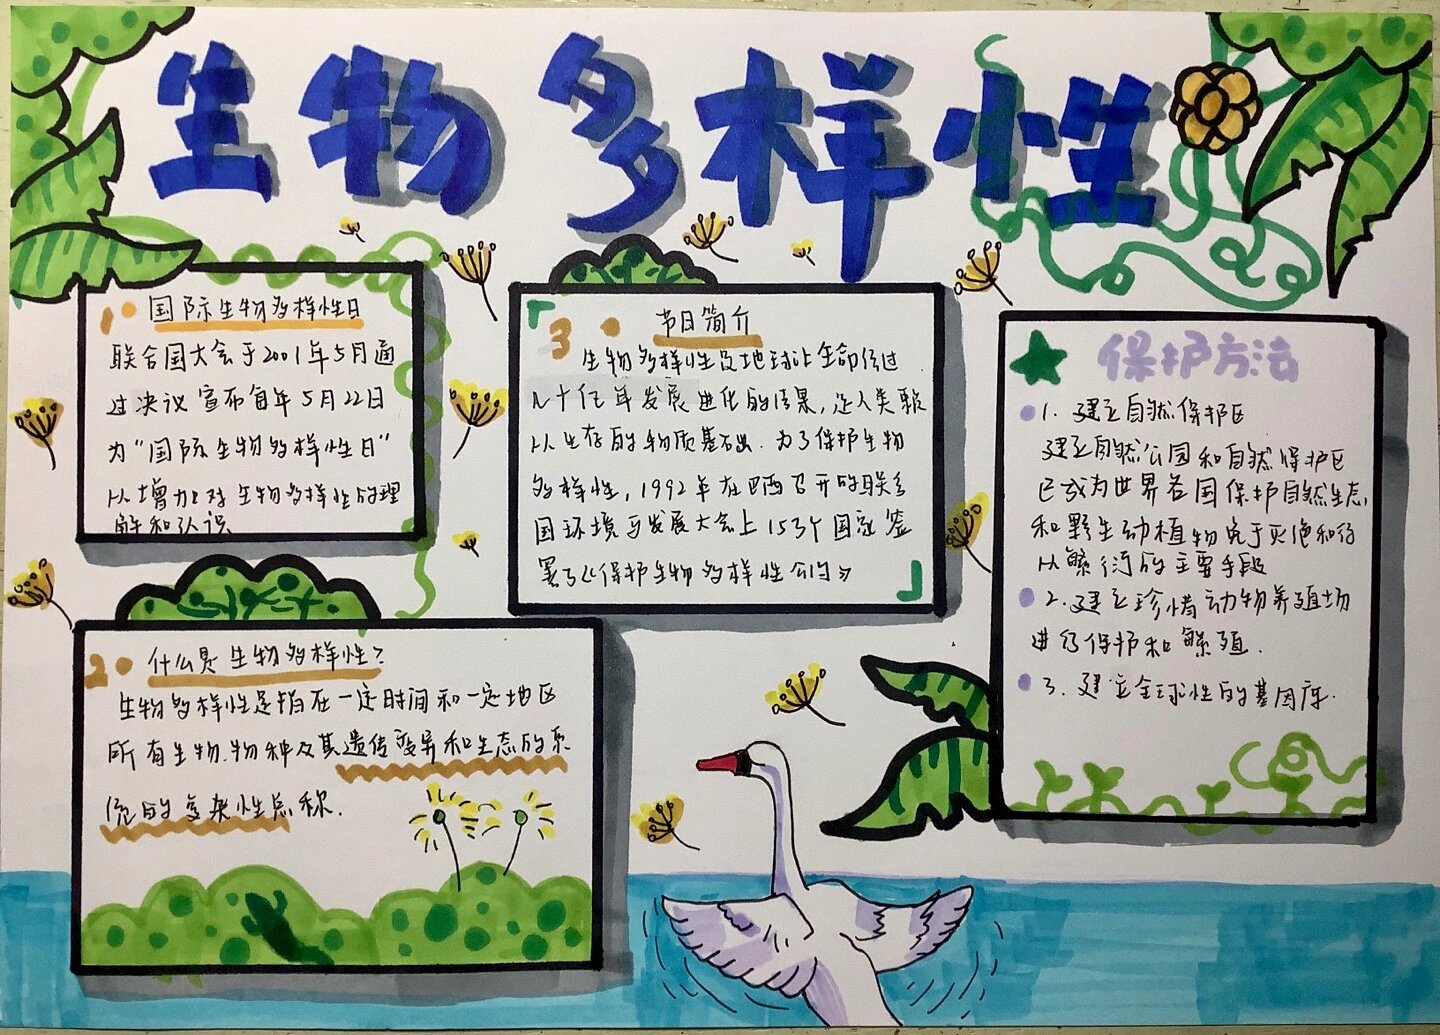 生物多样性
1. 国际生物多样性日
联合国大会于2001年5月通
过决议宣布每年5月22日
为"国际生物多样性日"
以增加对生物多样性的理
解和认识
2. 什么是生物多样性?
生物多样性是指在一定时间和一定地区
所有生物.物种及其遗传变异和生态的系
统的复杂性总称.
3. 节日简介
生物多样性是地球上生命经过
几十亿年发展进化的结果,是人类赖
以生存的物质基础出.为了保护生物
多样性,1992年在巴西召开的联合
国环境与发展大会上153个国家签
署了《保护生物多样性公约》
保护方法
1. 建立自然保护区
建立自然公园和自然保护区
已成为世界各国保护自然生态,
和野生动植物免于灭绝和得
以繁衍的主要手段
2. 建立珍惜动物养殖场
进行保护和繁殖.
3. 建立全球性的基因库.